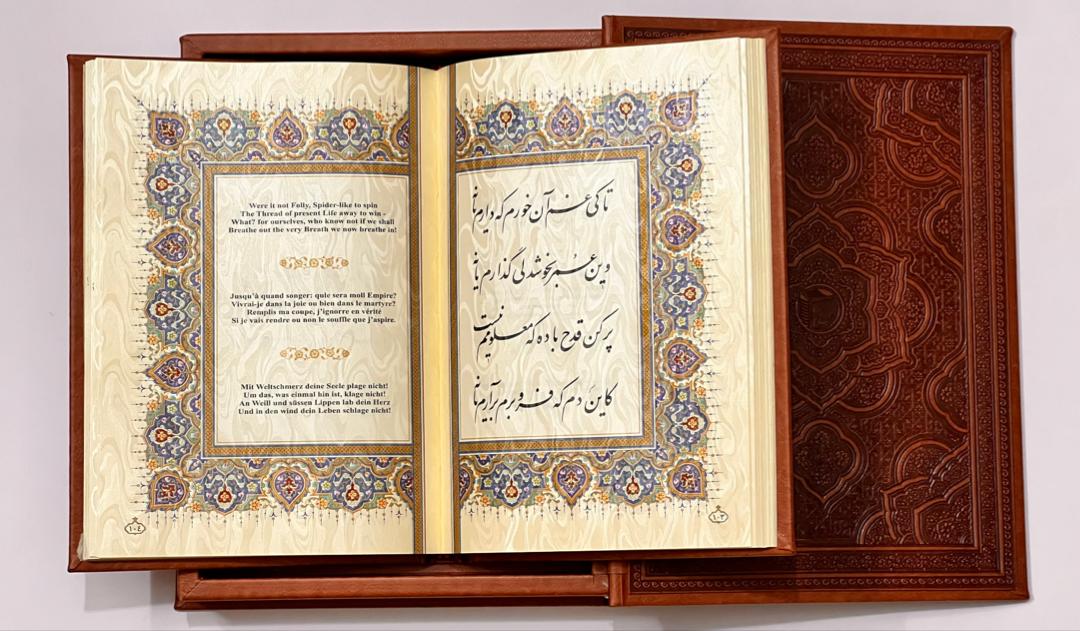 Were it not Folly, Spider-like to spin
The Thread of present Life away to win -
What? for ourselves, who know not if we shall
Breathe out the very Breath we now breathe in!
Jusqu'à quand songer: quie sera moil Empire?
Vivrai-je dans la joie ou bien dans le martyre?
Remplis ma coupe, j'ignorre en vérité
Si je vais rendre ou non le souffle que j'aspire.
Mit Weltschmerz deine Seele plage nicht!
Um das, was einmal hin ist, klage nicht!
An Weill und süssen Lippen lab dein Herz
Und in den wind dein Leben schlage nicht!
١٠٤
تا کی غم آن خورم که دارم یا نه
وین عمر بخوشدلی گذارم یا نه
پر کن قدح باده که معلومم نیست
کاین دم که فرو برم برآرم یا نه
١٠٣